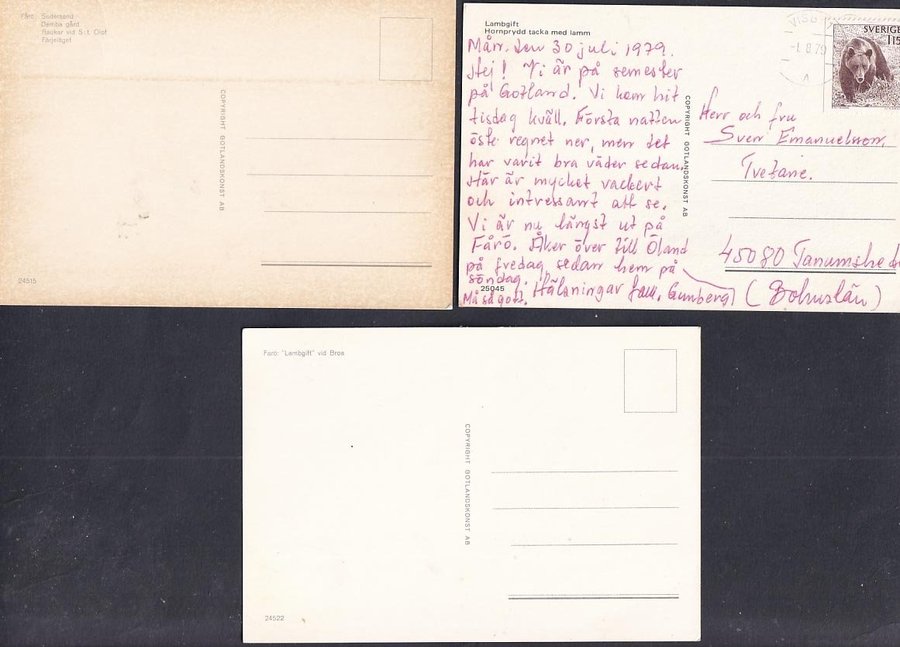 Fårö: Sudersand
Demba gård
Raukar vid S:t Olof
Färjeläget
COPYRIGHT GOTLANDSKONST AB
24515
Lambgift
Hornprydd tacka med lamm
Mån. den 30 juli 1979.
Hej! Vi är på semester
på Gotland. Vi kom hit
tisdag kväll. Första natten
öste regnet ner, men det
har varit bra väder sedan.
Här är mycket vackert
och intressant att se.
Vi är nu längst ut på
Fårö. Åker över till Öland
på fredag, sedan hem på
söndag.
Må så gott. Hälsningar fam. Gunberg
25045
COPYRIGHT GOTLANDSKONST AB
VISB
-1.8.79
A
SVERIGE
115
Herr och fru
Sven Emanuelsson
Tvetane.
45080 Tanumshede
(Bohuslän)
Fårö: "Lambgift" vid Broa
COPYRIGHT GOTLANDSKONST AB
24522